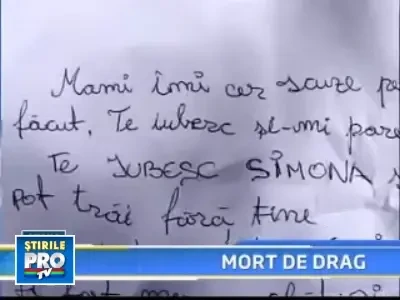 Mami îmi cer scuze pe
făcut. Te iubesc și-mi pare
TE IUBESC SIMONA
pot trăi fără tine
ȘTIRILE
PRO
TV
MORT DE DRAG